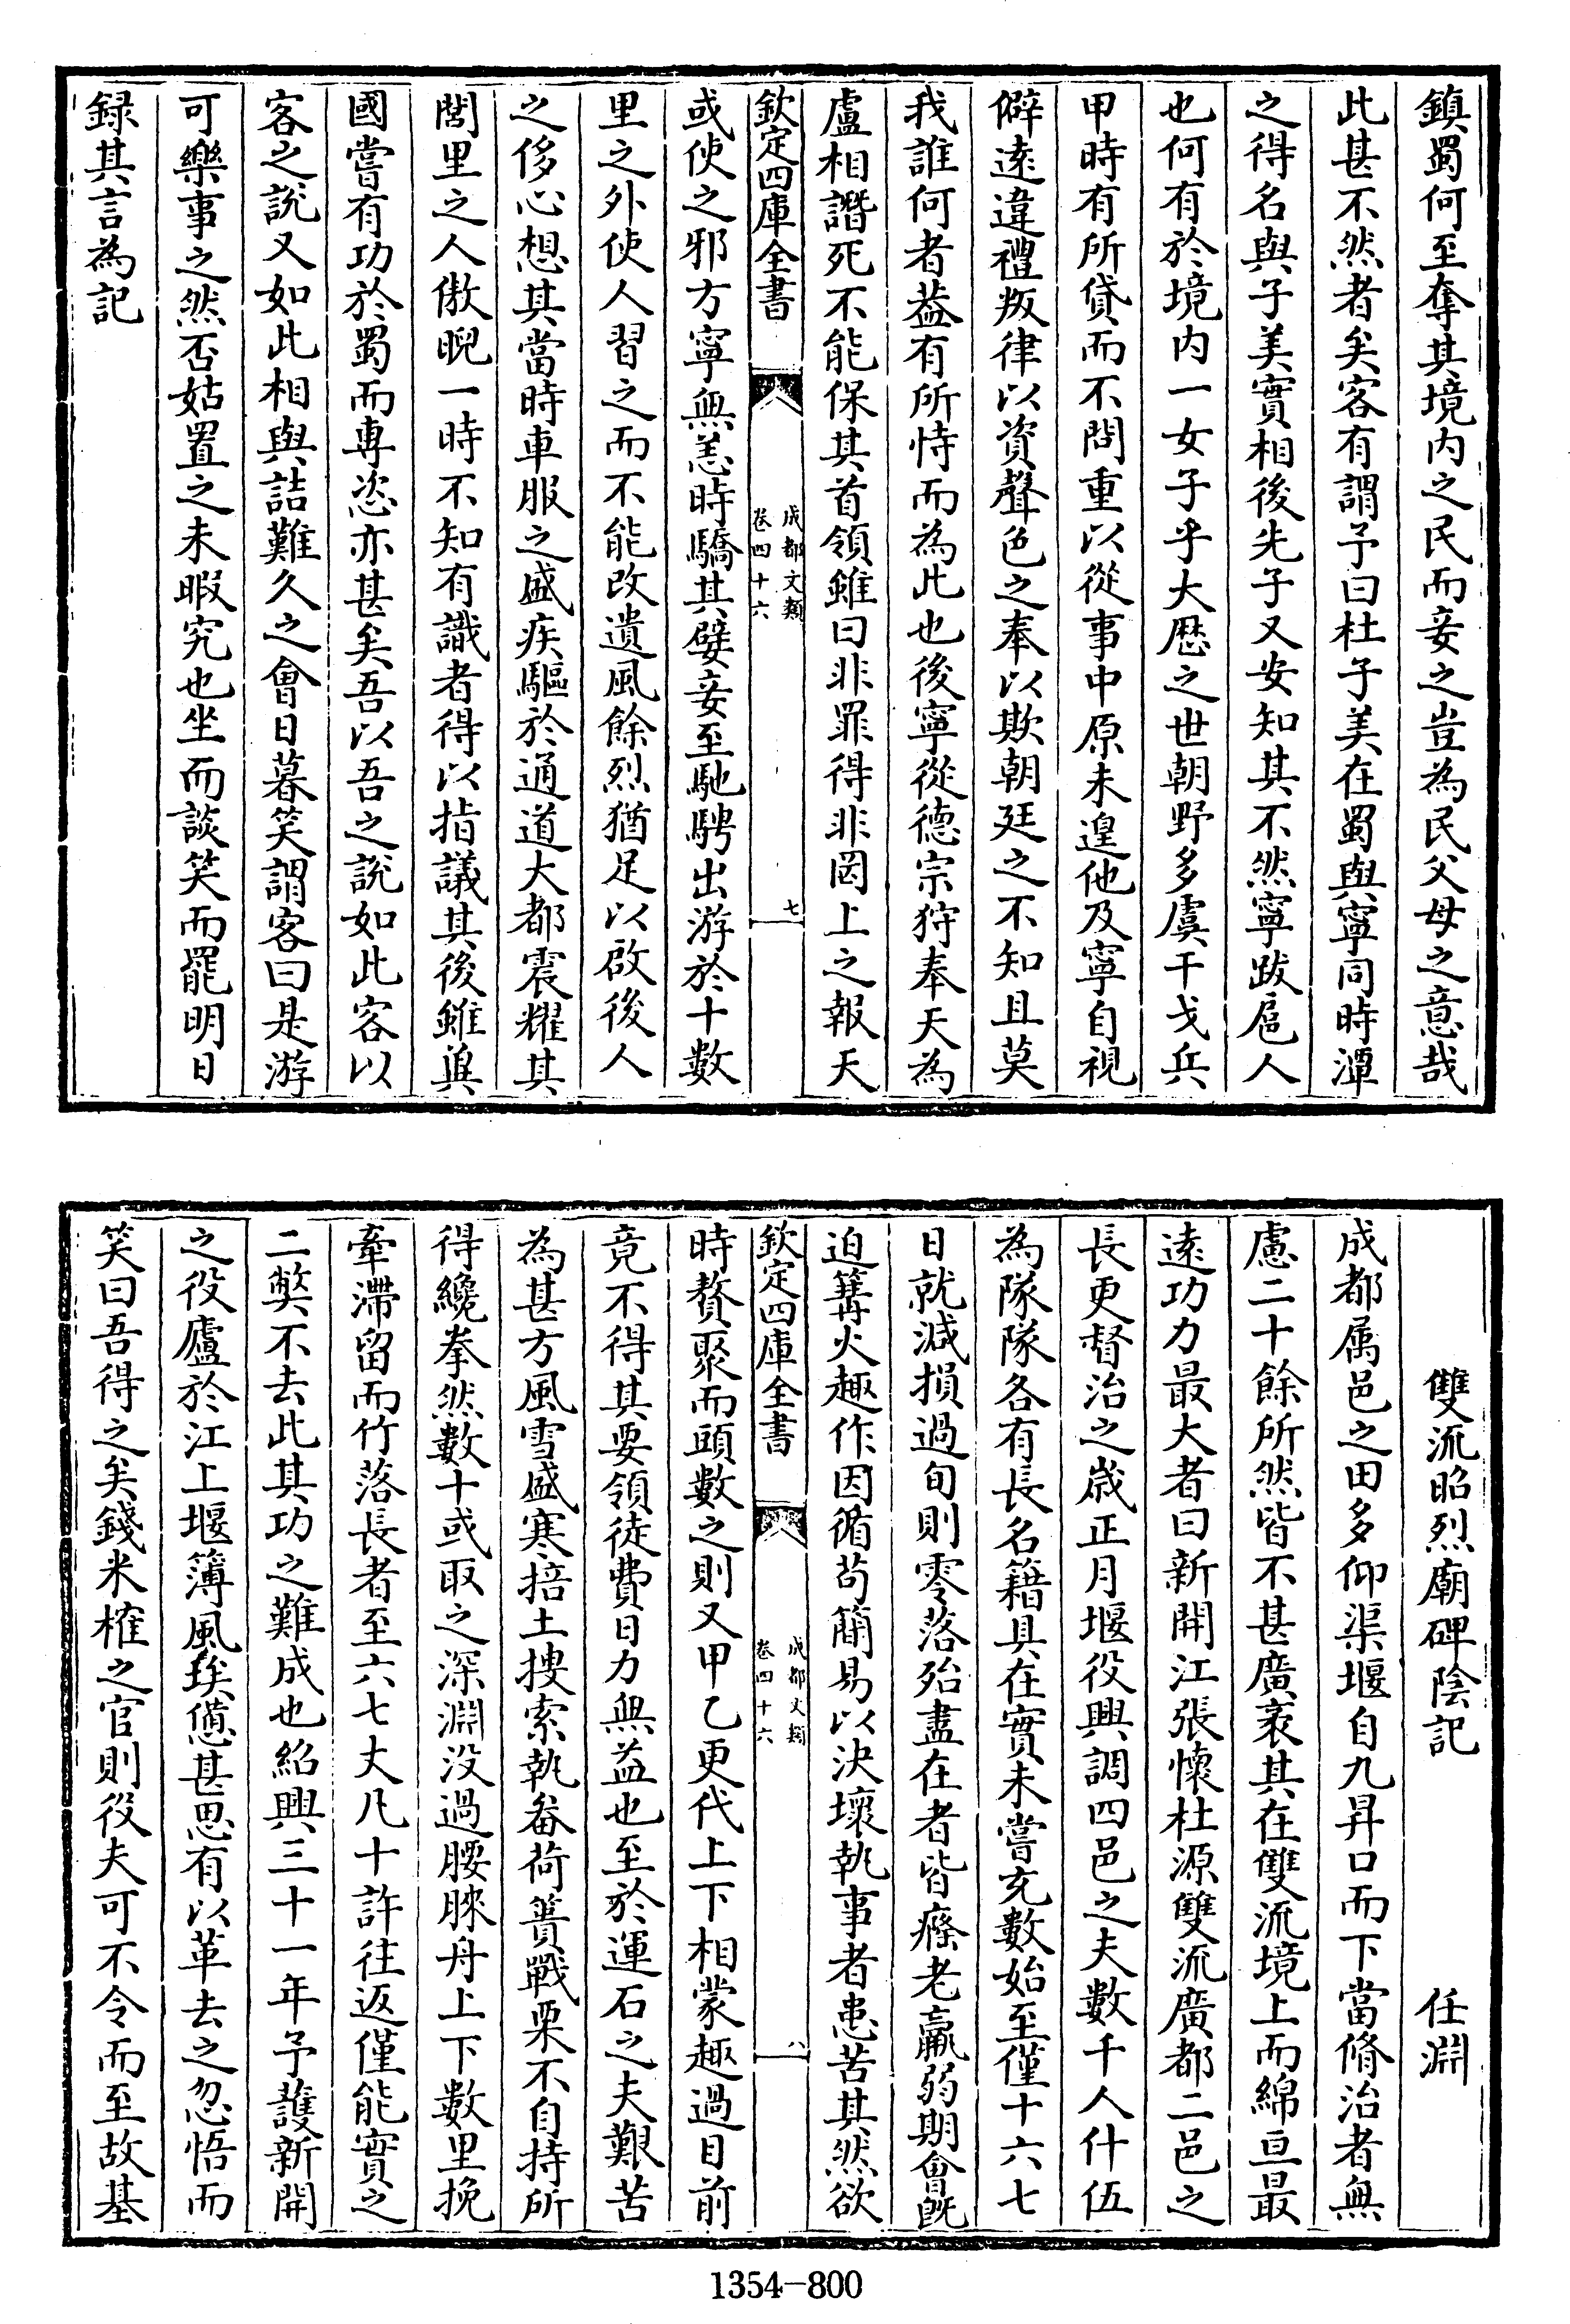 鎮蜀何至奪其境内之民而妾之豈為民父母之意哉
此甚不然者矣客有謂予曰杜子美在蜀與寧同時潭
之得名與子美實相後先子又安知其不然寧跋扈人
也何有於境内一女子乎大歴之世朝野多虞干戈兵
甲時有所貸而不問重以從事中原未遑他及寧自視
僻逺違禮叛律以資聲色之奉以欺朝廷之不知且莫
我誰何者葢有所恃而為此也後寧從德宗狩奉天為
盧相譖死不能保其首領雖曰非罪得非罔上之報天
欽定四庫全書
成都文類
卷四十六
七
或使之邪方寧無恙時驕其嬖妾至馳騁出游於十數
里之外使人習之而不能改遺風餘烈猶足以啟後人
之侈心想其當時車服之盛疾驅於通道大都震耀其
閭里之人傲睨一時不知有識者得以指議其後雖與
國嘗有功於蜀而專恣亦甚矣吾以吾之說如此客以
客之說又如此相與詰難久之會日暮笑謂客曰是游
可樂事之然否姑置之未暇究也坐而談笑而罷明日
録其言為記
雙流昭烈廟碑陰記 任淵
成都属邑之田多仰渠堰自九昇口而下當脩治者無
慮二十餘所然皆不甚廣袤其在雙流境上而綿亘最
逺功力最大者曰新開江張懷杜源雙流廣都二邑之
長更督治之歲正月堰役興調四邑之夫數千人什伍
為隊隊各有長名籍具在實未嘗充數始至僅十六七
日就減損過旬則零落殆盡在者皆癃老羸弱期會既
迫篝火趣作因循苟簡易以決壞執事者患苦其然欲
欽定四庫全書
成都文類
卷四十六
八
時贅聚而頭數之則又甲乙更代上下相蒙趣過目前
竟不得其要領徒費日力無益也至於運石之夫艱苦
為甚方風雪盛寒掊土捜索執畚荷蕢戰栗不自持所
得纔拳然數十或取之深淵没過腰脥舟上下數里挽
牽滯留而竹落長者至六七丈凡十許往返僅能實之
二獘不去此其功之難成也紹興三十一年予護新開
之役廬於江上堰簿風埃憊甚思有以革去之忽悟而
笑曰吾得之矣錢米榷之官則役夫可不令而至故基
1354-800